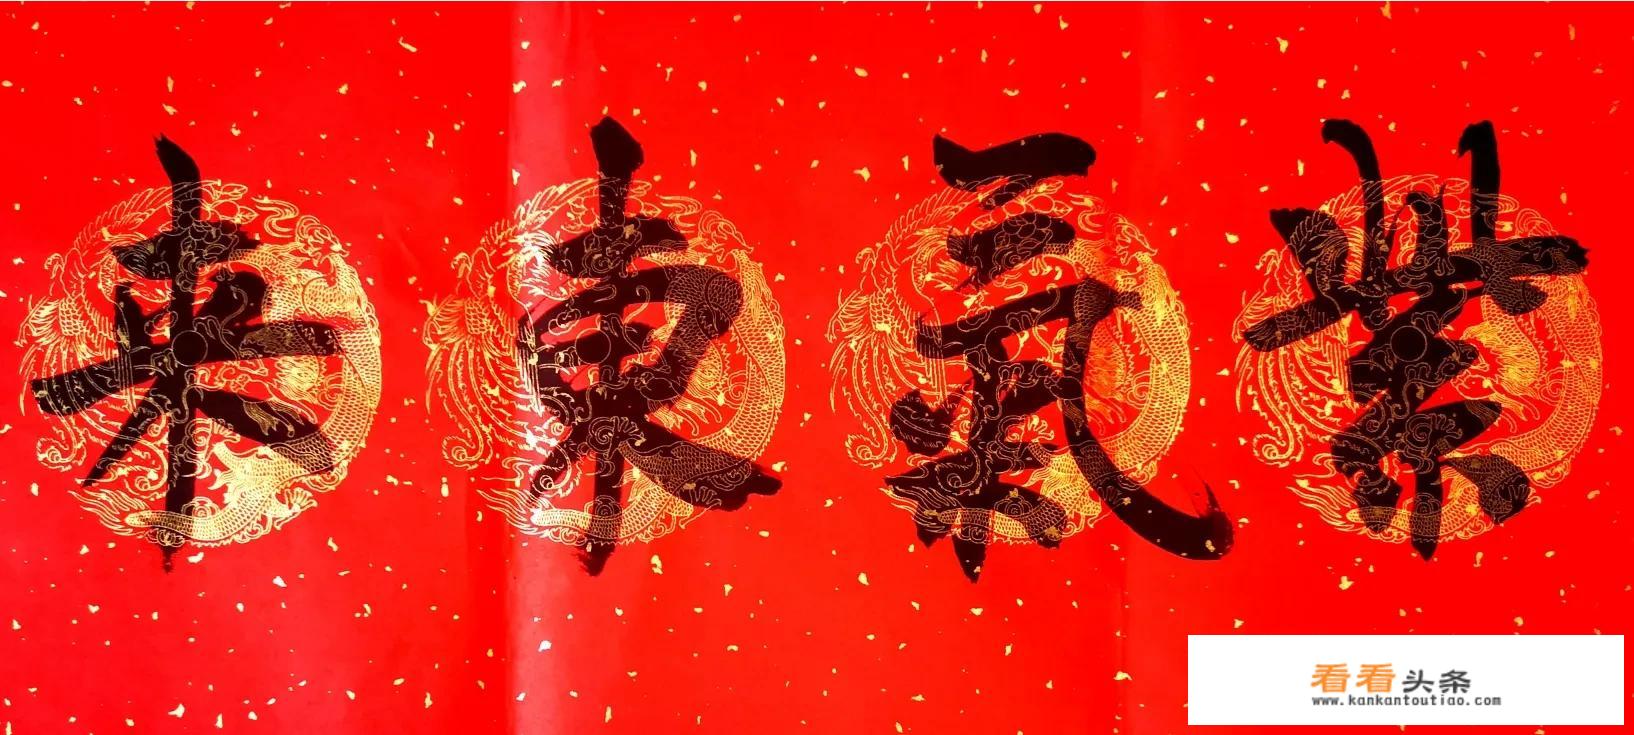 紫氣東来
看看头条
www.kankantoutiao.com